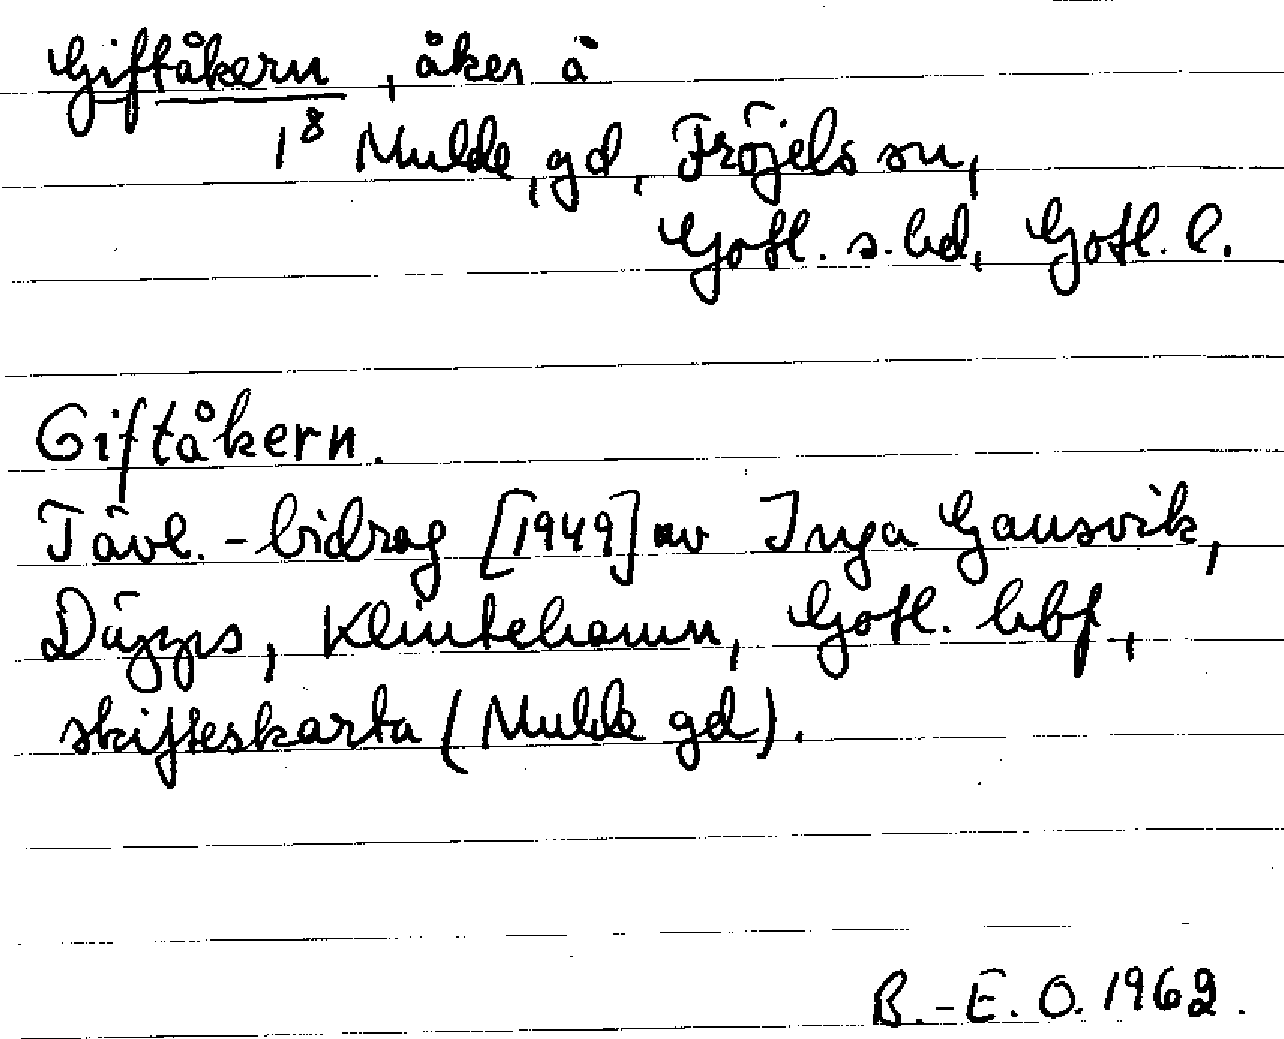 Giftåkern, åker å
1⁸ Mulde, gd, Fröjels sn,
Gotl. s. hd, Gotl. l.
Giftåkern.
Tävl.-bidrag [1949] av Inga Gansvik,
Däpps, Klintehamn, Gotl. hbf,
skifteskarta (Mulde gd).
B.-E. O. 1962.